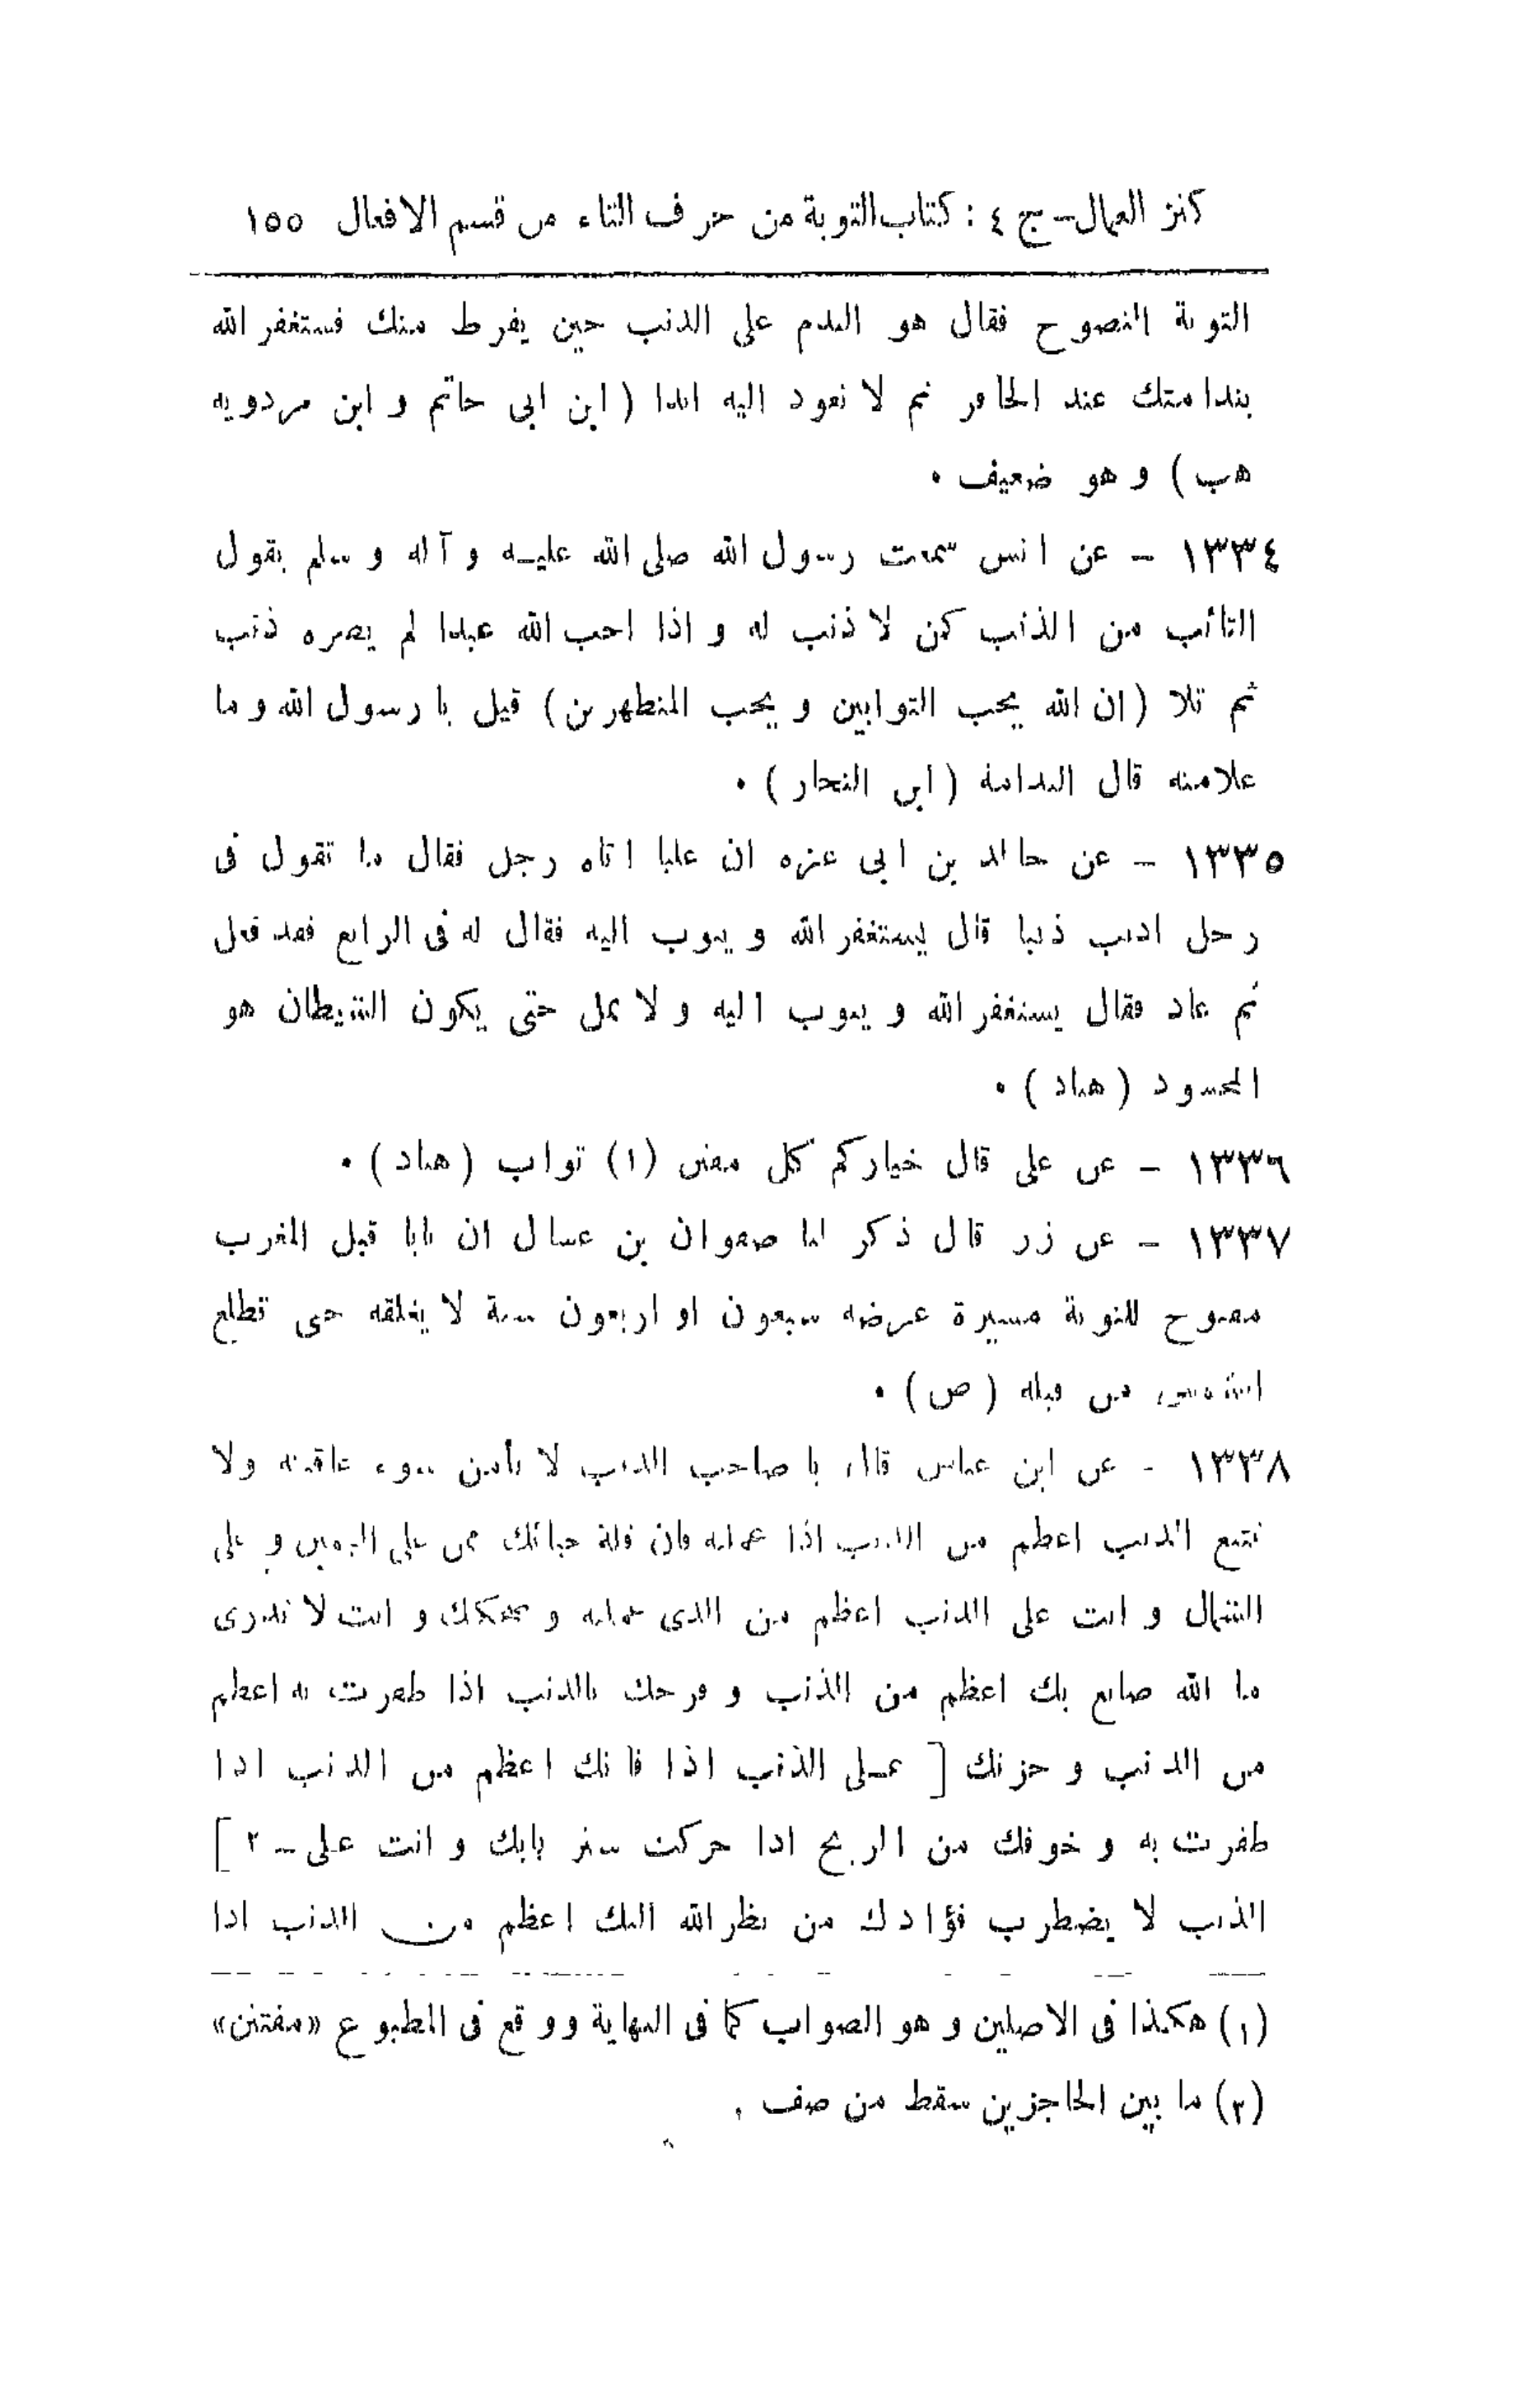 كنز العمال - ج ٤ : كتاب التوبة من حرف التاء من قسم الافعال ١٥٥
التوبة النصوح فقال هو الندم على الذنب حين يفرط منك فتستغفر الله
بندامتك عند الحافر ثم لا تعود اليه ابدا ( ابن ابى حاتم و ابن مردويه
هب ) و هو ضعيف .
١٣٣٤ - عن انس سمعت رسول الله صلى الله عليه و آله و سلم يقول
التائب من الذنب كمن لا ذنب له و اذا احب الله عبدا لم يضره ذنب
ثم تلا ( ان الله يحب التوابين و يحب المتطهرين ) قيل يا رسول الله و ما
علامته قال الندامة ( ابن النجار ) .
١٣٣٥ - عن خالد بن ابى عزه ان عليا اتاه رجل فقال ما تقول فى
رجل اذنب ذنبا قال يستغفر الله و يتوب اليه فقال له فى الرابع فقد فعل
ثم عاد فقال يستغفر الله و يتوب اليه و لا يمل حتى يكون الشيطان هو
المحسود ( هناد ) .
١٣٣٦ - عن على قال خياركم كل مفتن (١) تواب ( هناد ) .
١٣٣٧ - عن زر قال ذكر لنا صفوان بن عسال ان بابا قبل المغرب
مفتوح للتوبة مسيرة عرضه سبعون او اربعون سنة لا يغلقه حتى تطلع
الشمس من قبله ( ص ) .
١٣٣٨ - عن ابن عباس قال يا صاحب الذنب لا تأمن سوء عاقبته ولا
تتبع الذنب اعظم من الذنب اذا عملته فان قلة حيائك ممن على اليمين و على
الشمال و انت على الذنب اعظم من الذى عملته و ضحكك و انت لا تدرى
ما الله صانع بك اعظم من الذنب و فرحك بالذنب اذا ظفرت به اعظم
من الذنب و حزنك [ على الذنب اذا فاتك اعظم من الذنب اذا
ظفرت به و خوفك من الريح اذا حركت ستر بابك و انت على - ٢ ]
الذنب لا يضطرب فؤادك من نظر الله اليك اعظم من الذنب اذا
(١) هكذا فى الاصلين و هو الصواب كما فى النهاية ووقع فى المطبوع «مفتتن»
(٢) ما بين الحاجزين سقط من صف .